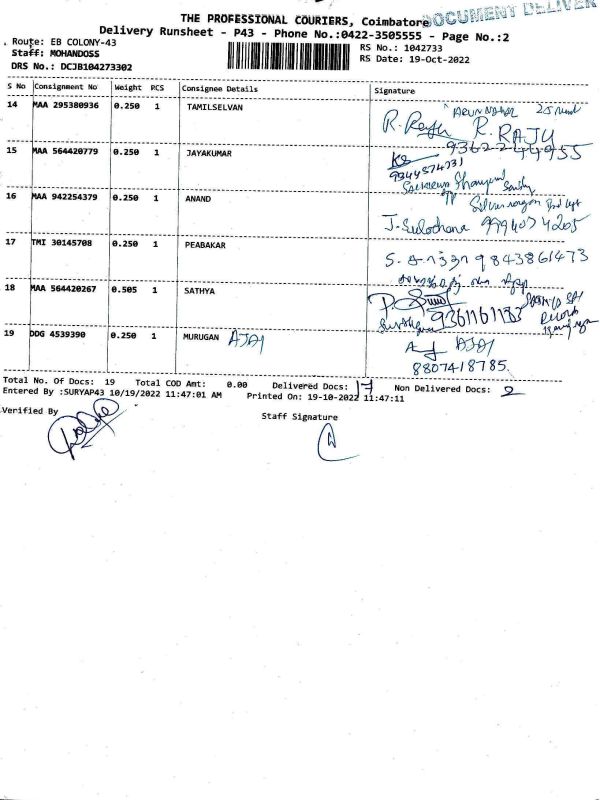 DOCUMENT DELIVER
THE PROFESSIONAL COURIERS, Coimbatore
Delivery Runsheet - P43 - Phone No.:0422-3505555 - Page No.:2
Route: EB COLONY-43
Staff: MOHANDOSS
DRS No.: DCJB104273302
RS No.: 1042733
RS Date: 19-Oct-2022
S No Consignment No Weight PCS Consignee Details Signature
14 MAA 295380936 0.250 1 TAMILSELVAN
R. RAJU
9362244955
15 MAA 564420779 0.250 1 JAYAKUMAR
9344874731
16 MAA 942254379 0.250 1 ANAND
J. Sulochana 9994074205
17 TMI 30145708 0.250 1 PEABAKAR
9843861473
18 MAA 564420267 0.505 1 SATHYA
9361161133
19 DDG 4539390 0.250 1 MURUGAN AJAY
AJAY
8807418785
Total No. Of Docs: 19 Total COD Amt: 0.00 Delivered Docs: 17 Non Delivered Docs: 2
Entered By :SURYAP43 10/19/2022 11:47:01 AM Printed On: 19-10-2022 11:47:11
Verified By
Staff Signature